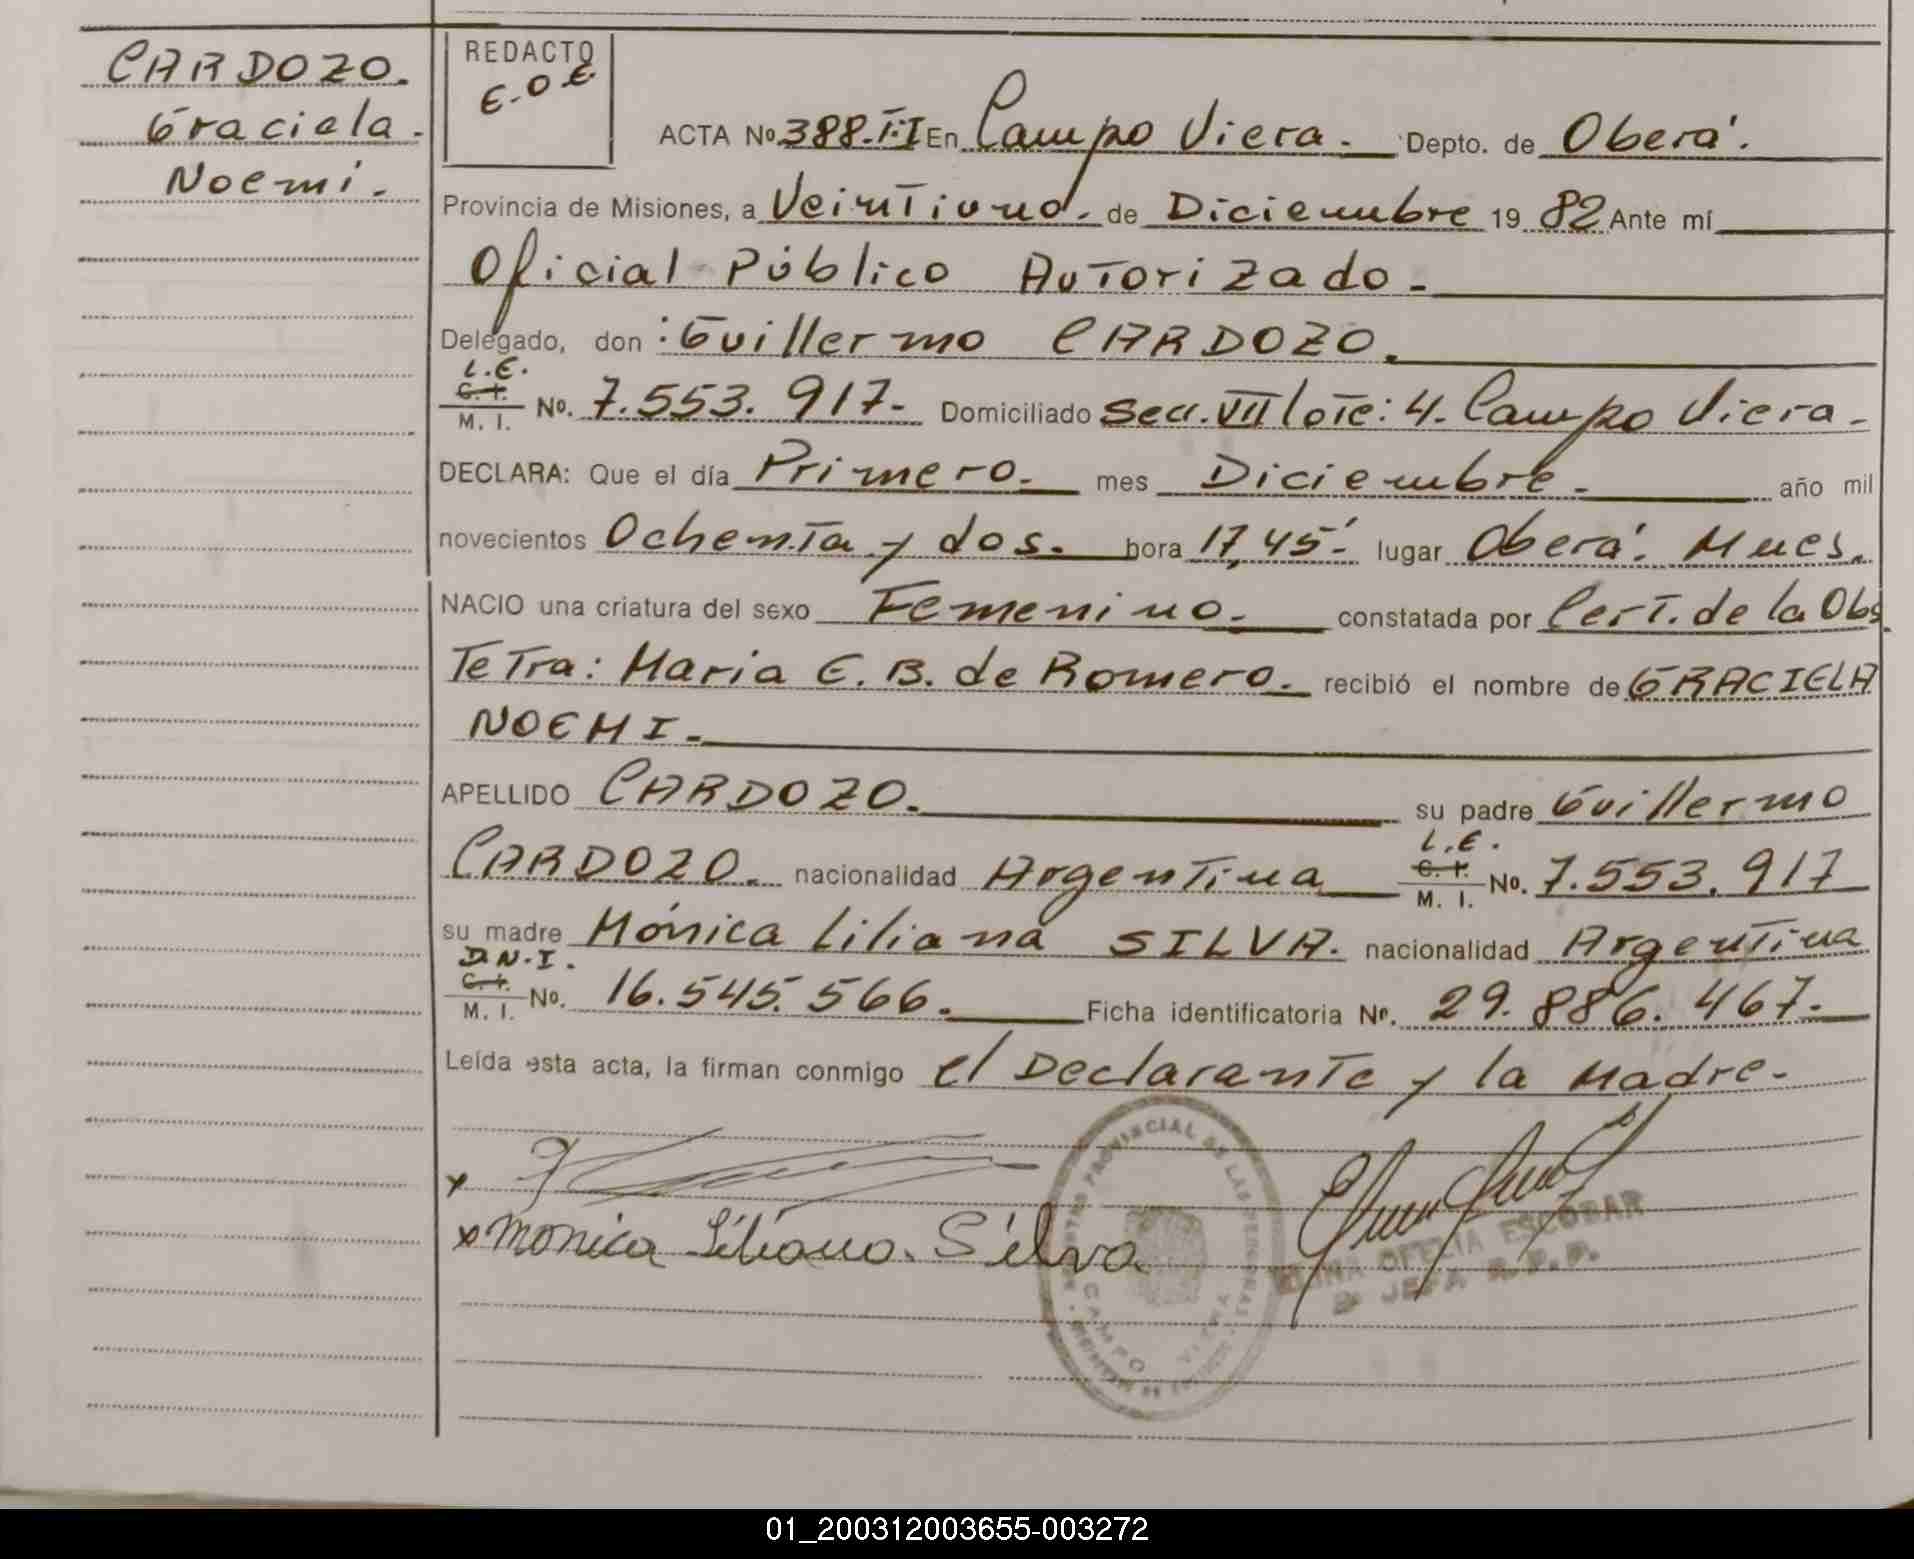 CARDOZO.
Graciela.
Noemi.
REDACTO
E.O.E.
ACTA Nº 388.T:I En Campo Viera. Depto. de Oberá.
Provincia de Misiones, a Veintiuno. de Diciembre 19 82 Ante mí
Oficial Público Autorizado.
Delegado, don: Guillermo CARDOZO.
L.E.
C. I.
M. I. Nº. 7.553.917. Domiciliado Secc. VII lote: 4. Campo Viera.
DECLARA: Que el día Primero. mes Diciembre. año mil
novecientos Ochenta y dos. hora 17,45'. lugar Oberá. Mnes.
NACIO una criatura del sexo Femenino. constatada por Cert. de la Obs
Tetra: Maria E. B. de Romero. recibió el nombre de GRACIELA
NOEMI.
APELLIDO CARDOZO. su padre Guillermo
L.E.
CARDOZO. nacionalidad Argentina C. I. M. I. Nº. 7.553.917
su madre Mónica Liliana SILVA. nacionalidad Argentina
D.N.I.
C. I.
M. I. Nº. 16.545.566. Ficha identificatoria Nº. 29.886.467.
Leída esta acta, la firman conmigo el Declarante y la Madre.
x
x Monica Liliana. Silva
REGISTRO PROVINCIAL DE LAS PERSONAS
CAMPO VIERA
OFELIA ESCOBAR
JEFA R.P.P.
01_200312003655-003272